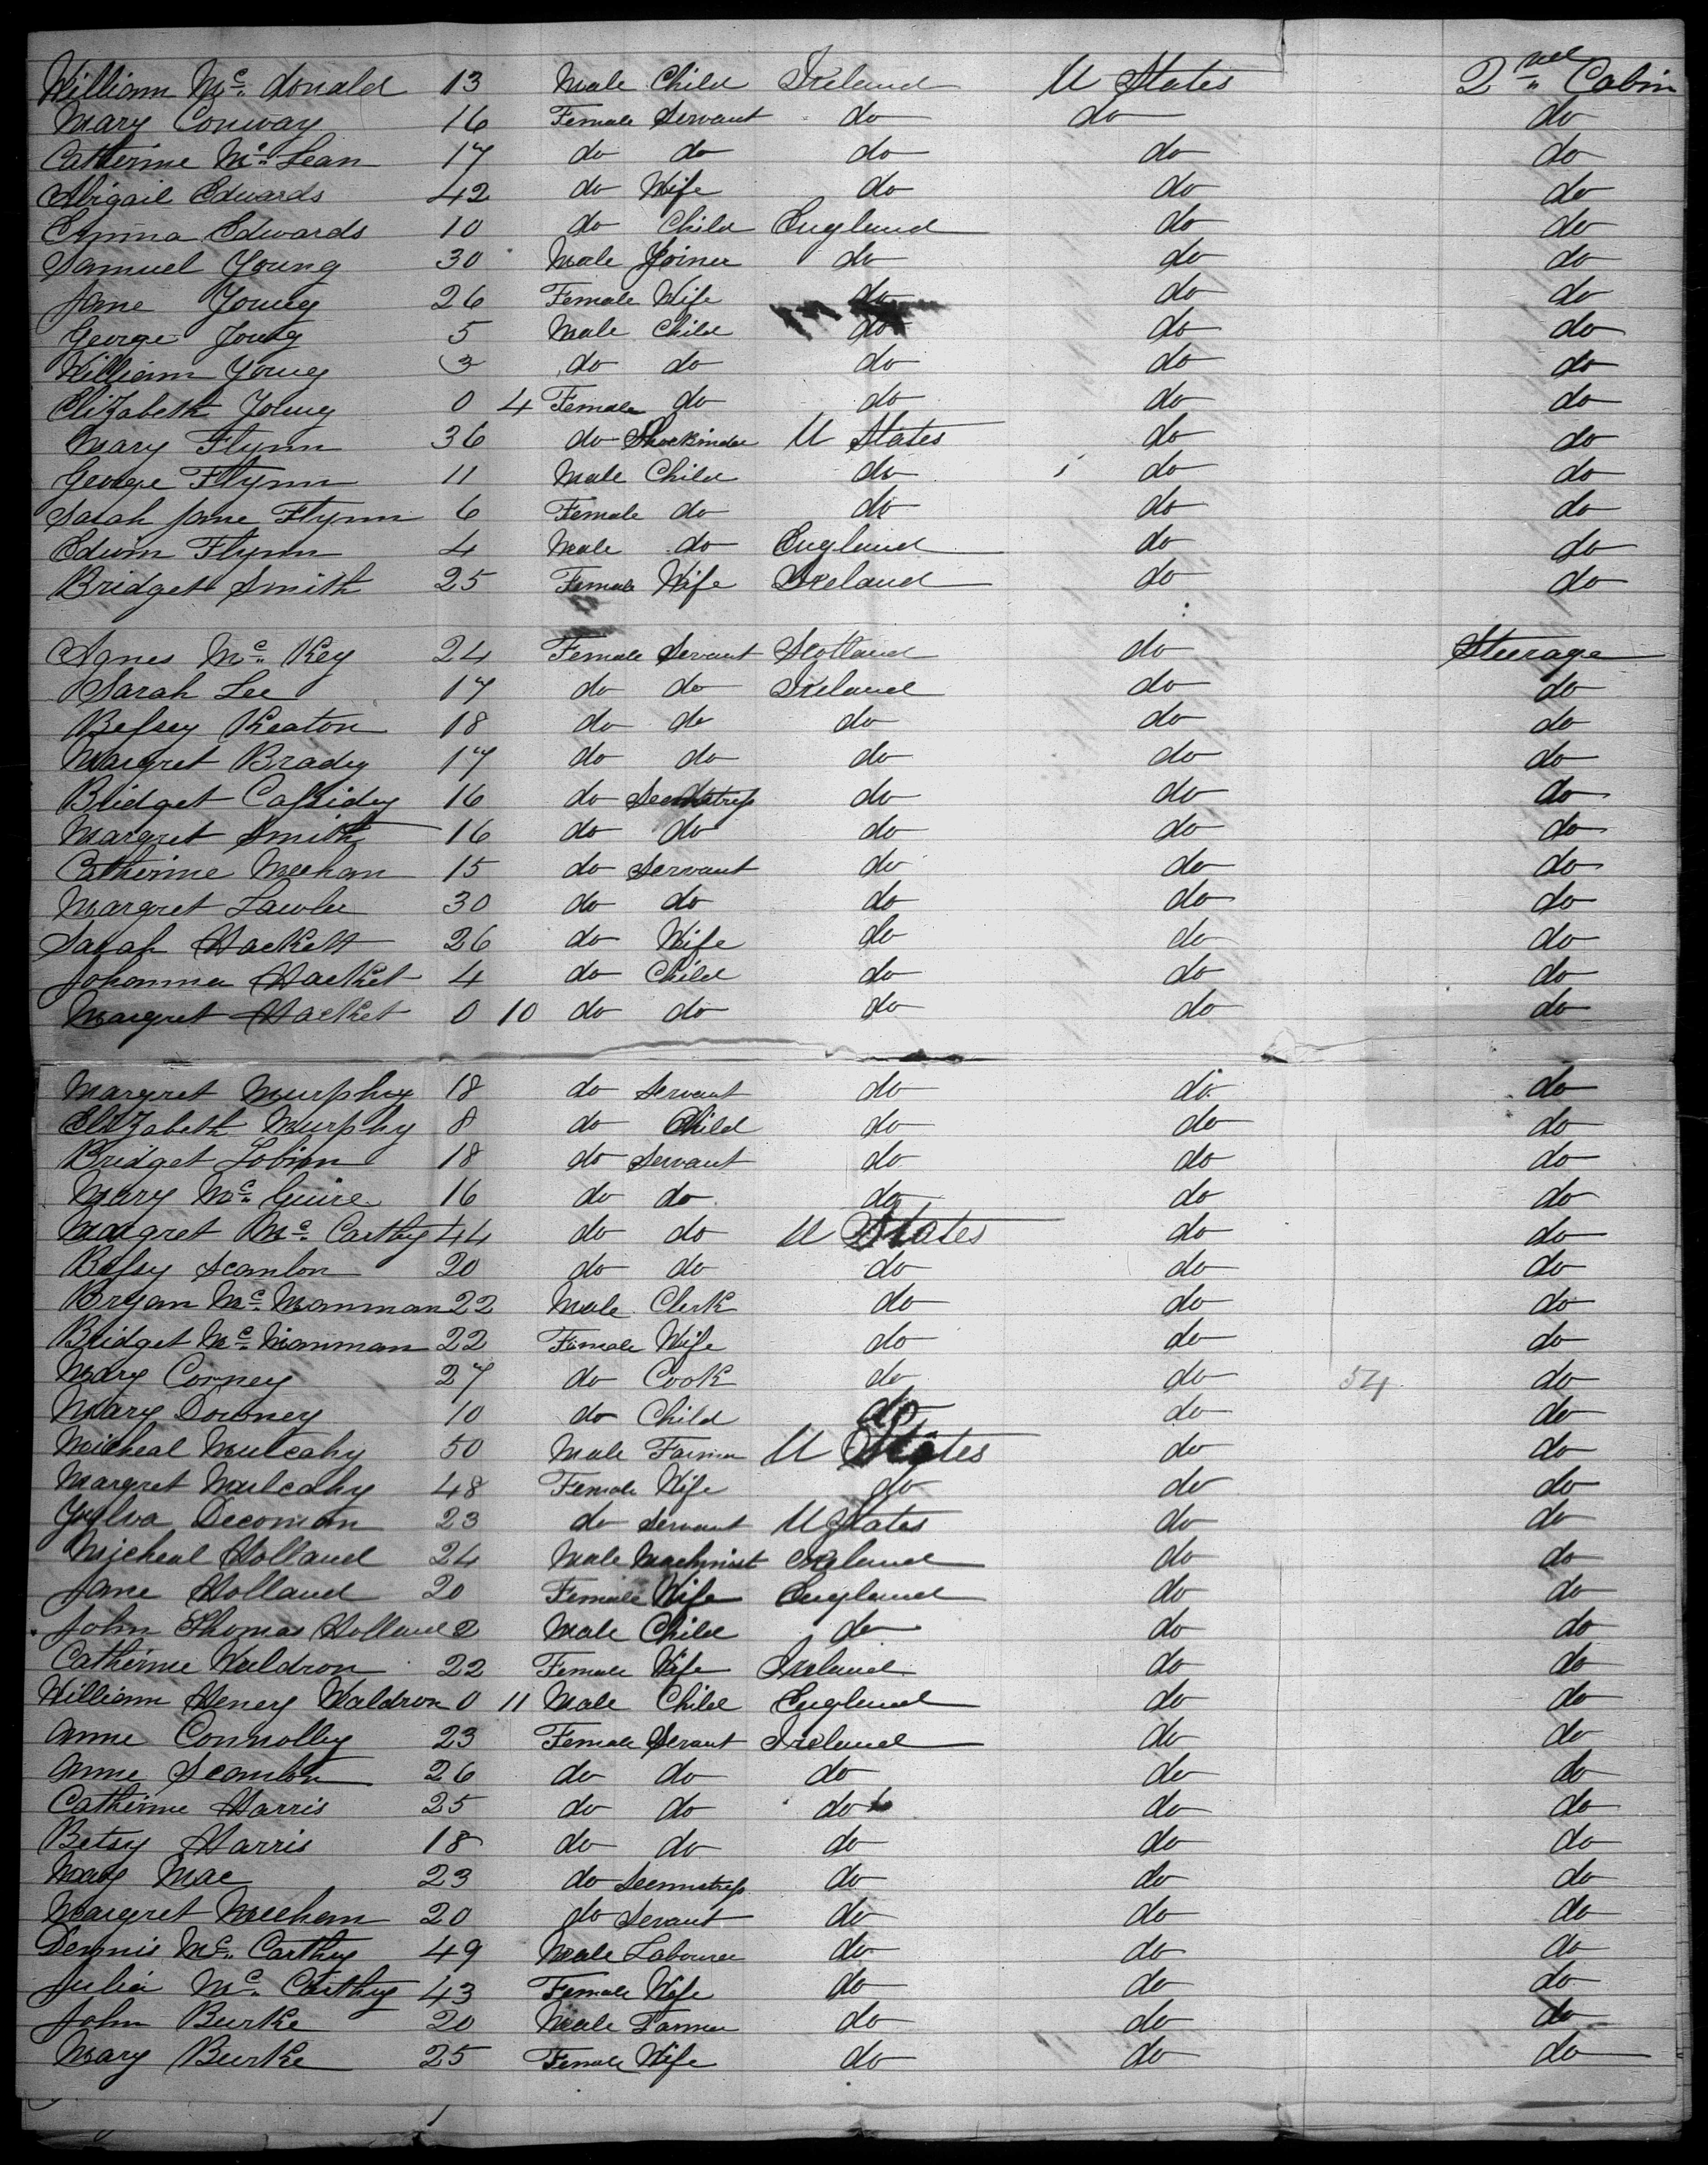 William Mc. donald 13 Male Child Ireland U States 2nd Cabin
Mary Conway 16 Female Servant do do do
Catherine Mc. Lean 17 do do do do do
Abigail Edwards 42 do Wife do do do
Emma Edwards 10 do Child England do do
Samuel Young 30 Male Joiner do do do
Jane Young 26 Female Wife do do do
George Young 5 Male Child do do do
William Young 3 do do do do do
Elizabeth Young 0 4 Female do do do do
Mary Flynn 36 do U States do do
George Flynn 11 Male Child do do do
Sarah Jane Flynn 6 Female do do do do
Edwin Flynn 4 Male do England do do
Bridget Smith 25 Female Wife Ireland do do
Agnes Mc. Key 24 Female Servant Scotland do Steerage
Sarah Lee 17 do do Ireland do do
Bessey Keaton 18 do do do do do
Margret Brady 17 do do do do do
Bridget Cassidy 16 do Seemstress do do do
Margret Smith 16 do do do do do
Catherine Meehan 15 do Servant do do do
Margret Lawler 30 do do do do do
Sarah Hackett 26 do Wife do do do
Johanna Hacket 4 do Child do do do
Margret Hacket 0 10 do do do do do
Margret Murphy 18 do Servant do do do
Elizabeth Murphy 8 do Child do do do
Bridget Tobinn 18 do Servant do do do
Mary Mc. Guire 16 do do do do do
Margret Mc. Carthy 44 do do U States do do
Bessy Scanlon 20 do do do do do
Bryan Mc. Mannman 22 Male Clerk do do do
Bridget Mc. Mannman 22 Female Wife do do do
Mary Corney 27 do Cook do do 54 do
Mary Downey 10 do Child do do do
Micheal Mulcahy 50 Male Farmer U States do do
Margret Mulcahy 48 Female Wife do do do
23 do Servant U States do do
Micheal Holland 24 Male Machinist Ireland do do
Jane Holland 20 Female Wife England do do
John Thomas Holland 2 Male Child do do do
Catherine Waldron 22 Female Wife Ireland do do
William Henery Waldron 0 11 Male Child England do do
Anne Connolly 23 Female Servant Ireland do do
Anne Scanlon 26 do do do do do
Catherine Harris 25 do do do do do
Betsy Harris 18 do do do do do
Mary Mae 23 do Seemstress do do do
Margret Meehan 20 do Servant do do do
Dennis Mc. Carthy 49 Male Labourer do do do
Julia Mc. Carthy 43 Female Wife do do do
John Burke 20 Male Farmer do do do
Mary Burke 25 Female Wife do do do